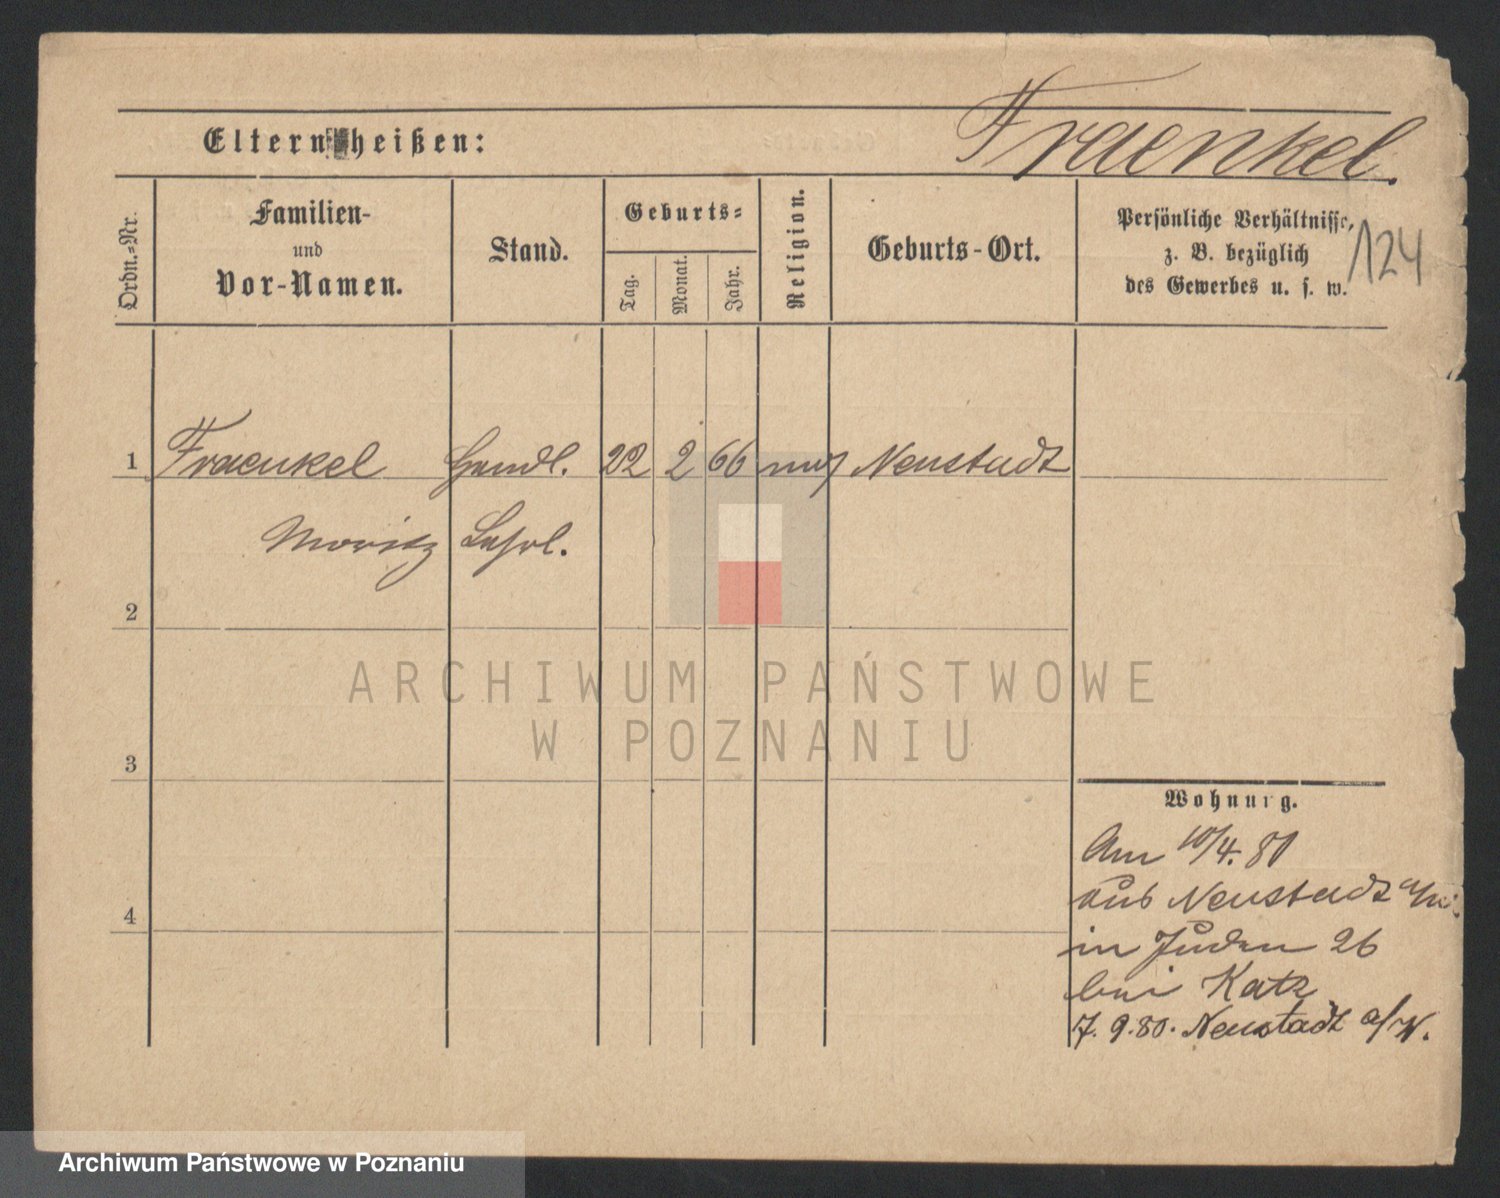 Eltern heißen:
Fraenkel.
124
Ordn.-Nr.
Familien-
und
Vor-Namen.
Stand.
Geburts-
Tag.
Monat.
Jahr.
Religion.
Geburts-Ort.
Persönliche Verhältnisse,
z. B. bezüglich
des Gewerbes u. s. w.
1 Fraenkel Handl. 22 2 66 mos Neustadt
Moritz Lehrl.
2
3
4
Wohnung.
Am 10/4. 80
aus Neustadt
in Juden 26
bei Katz
7. 9. 80. Neustadt a/W.
ARCHIWUM PAŃSTWOWE
W POZNANIU
Archiwum Państwowe w Poznaniu